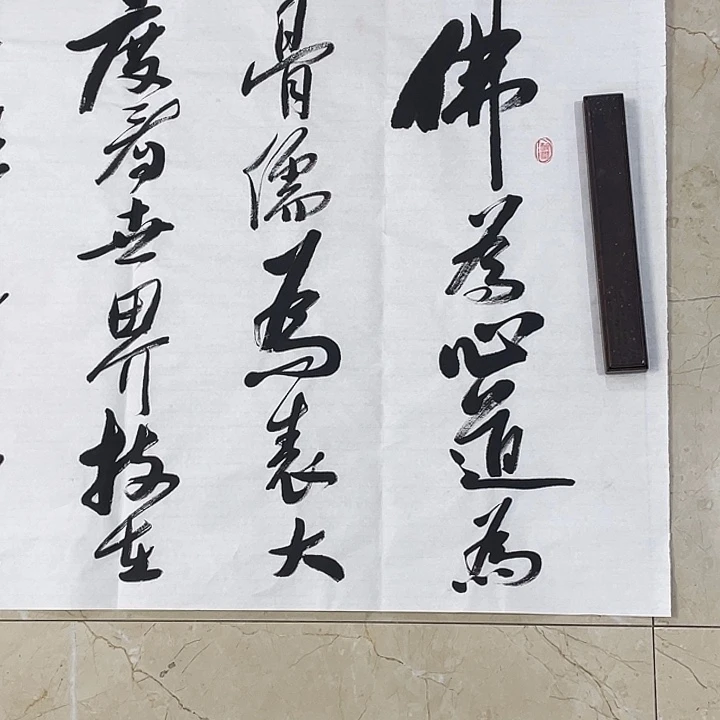 佛為心道為
骨儒為表大
度看世界技在